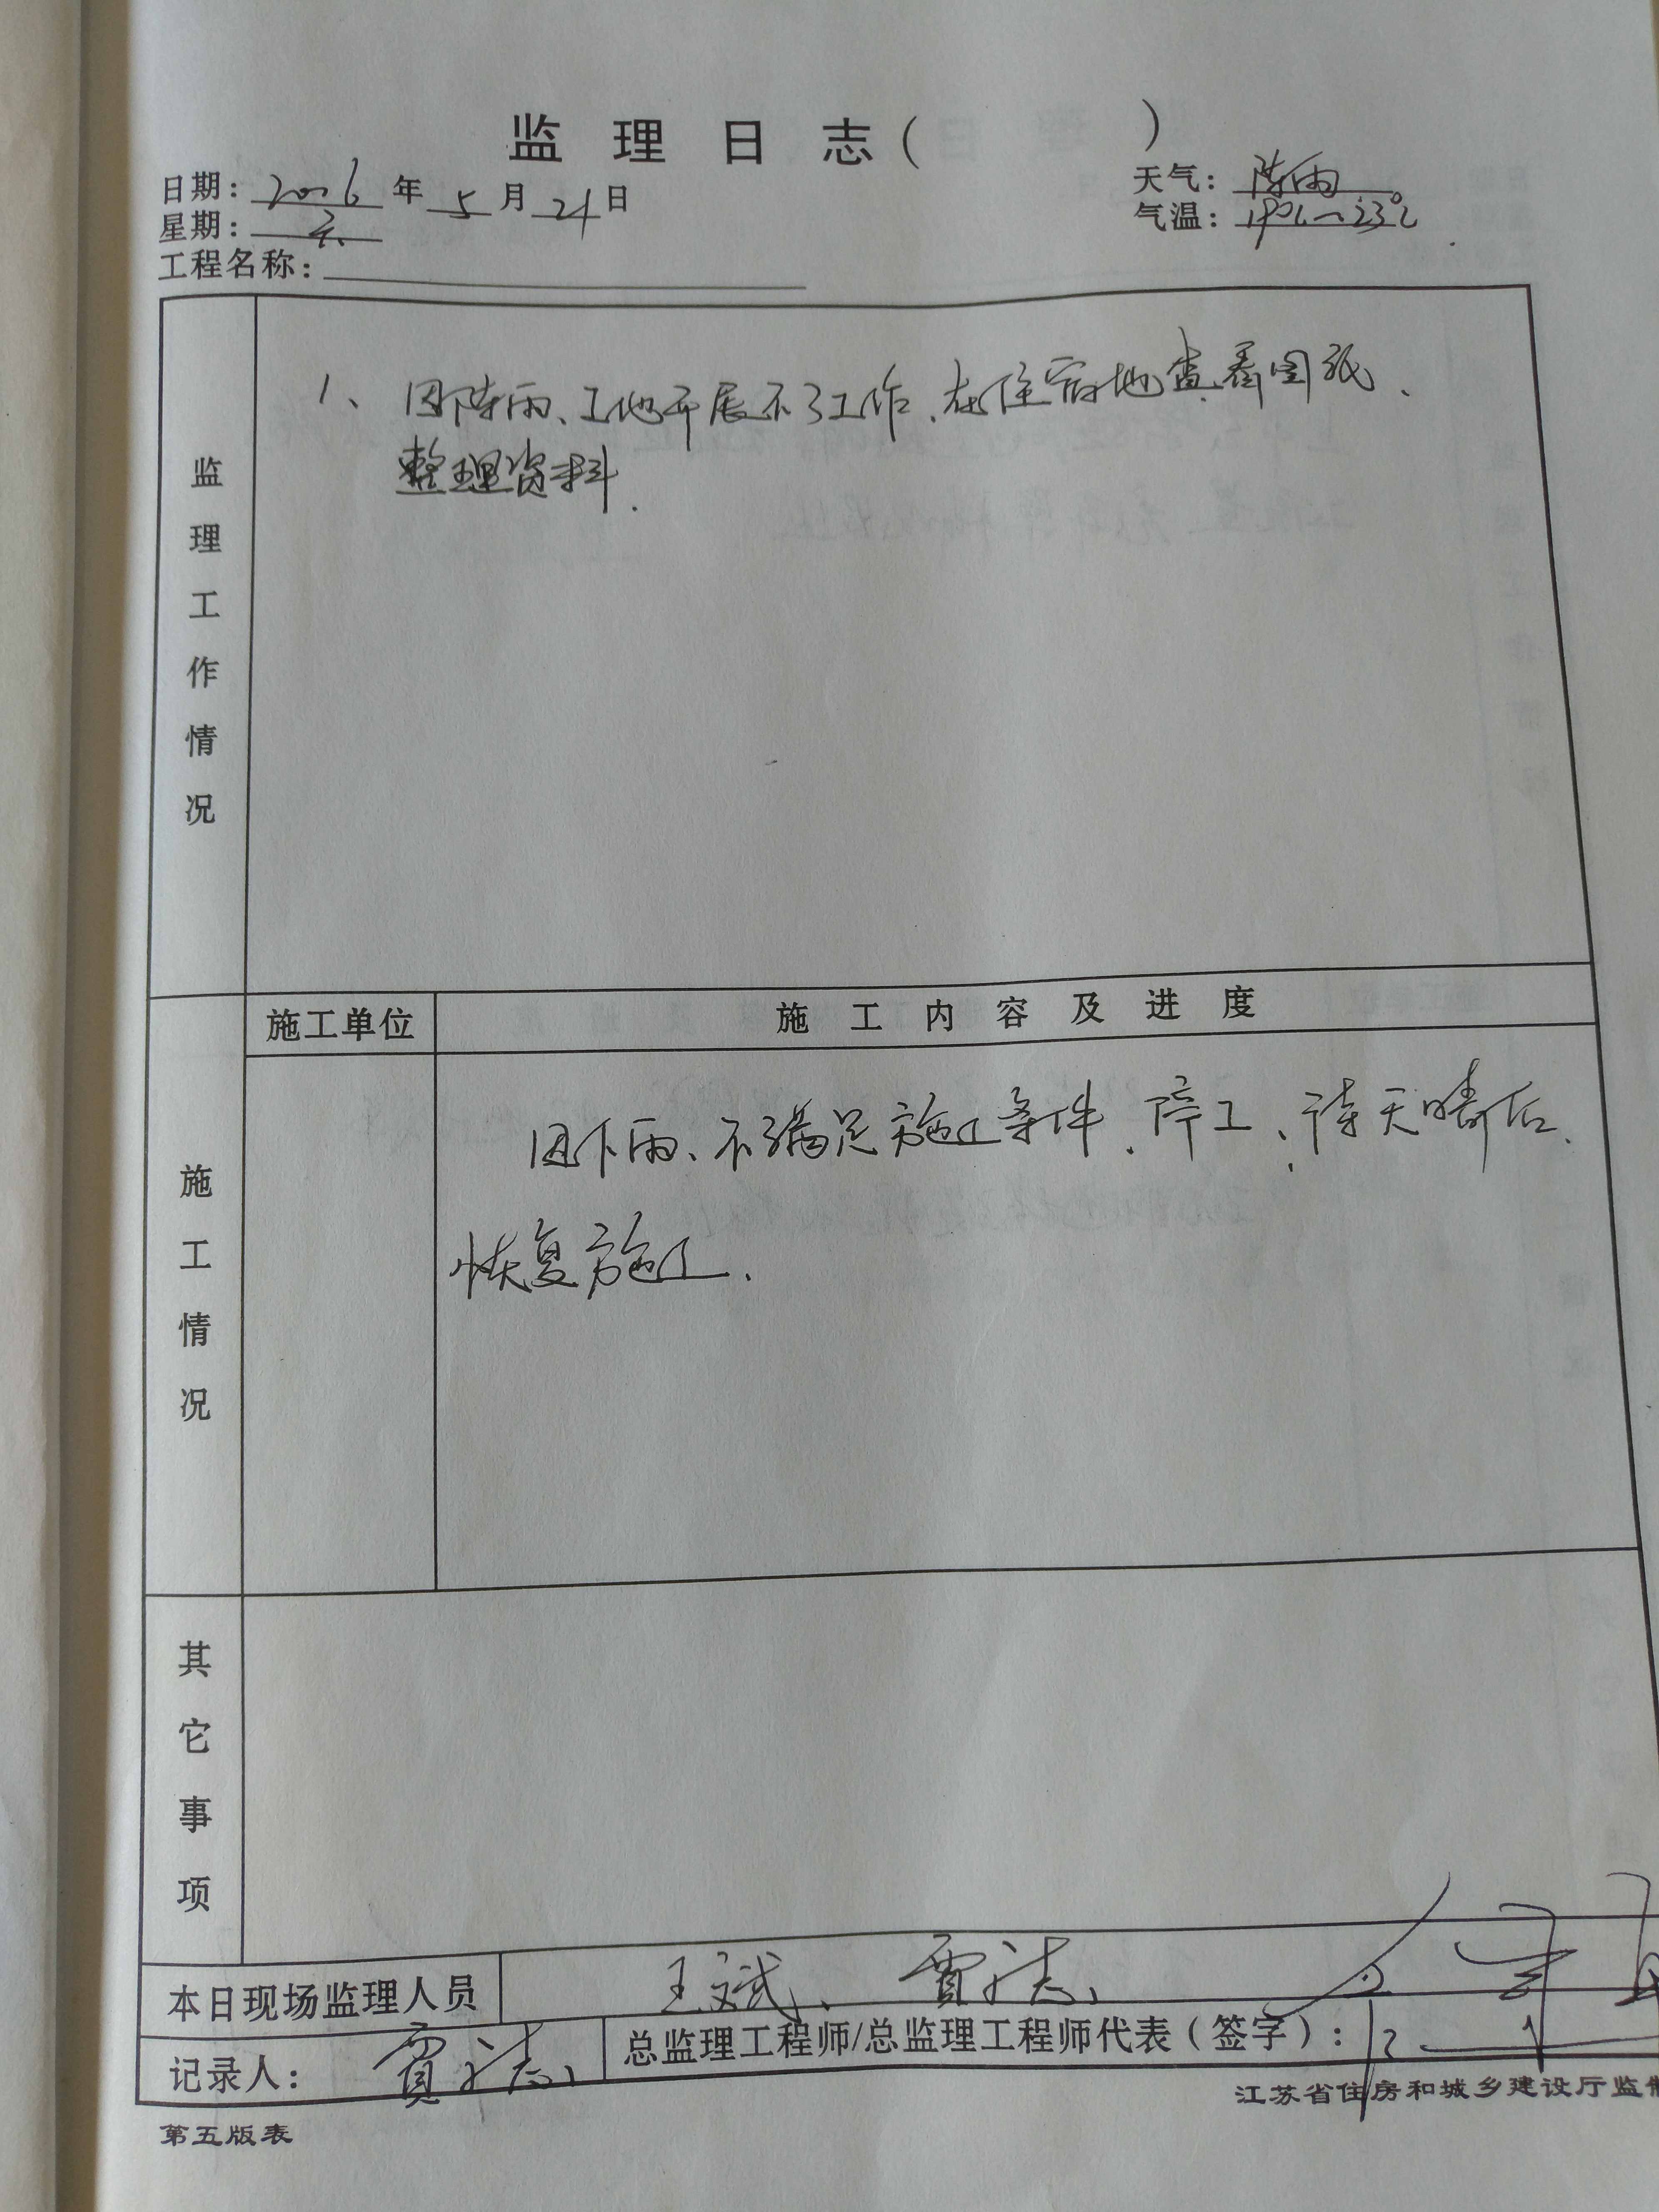 监理日志( )
日期: 2016 年 5 月 21 日
天气: 阵雨
星期: 六
气温: 19℃~23℃
工程名称:
监理工作情况
1、因阵雨、工地开展不了工作、在住宿地查看图纸、
整理资料.
施工单位 施工内容及进度
施工情况
因下雨、不满足施工条件、停工、待天晴后、
恢复施工.
其它事项
本日现场监理人员 王斌、贾
记录人: 贾 总监理工程师/总监理工程师代表(签字):
江苏省住房和城乡建设厅监制
第五版表